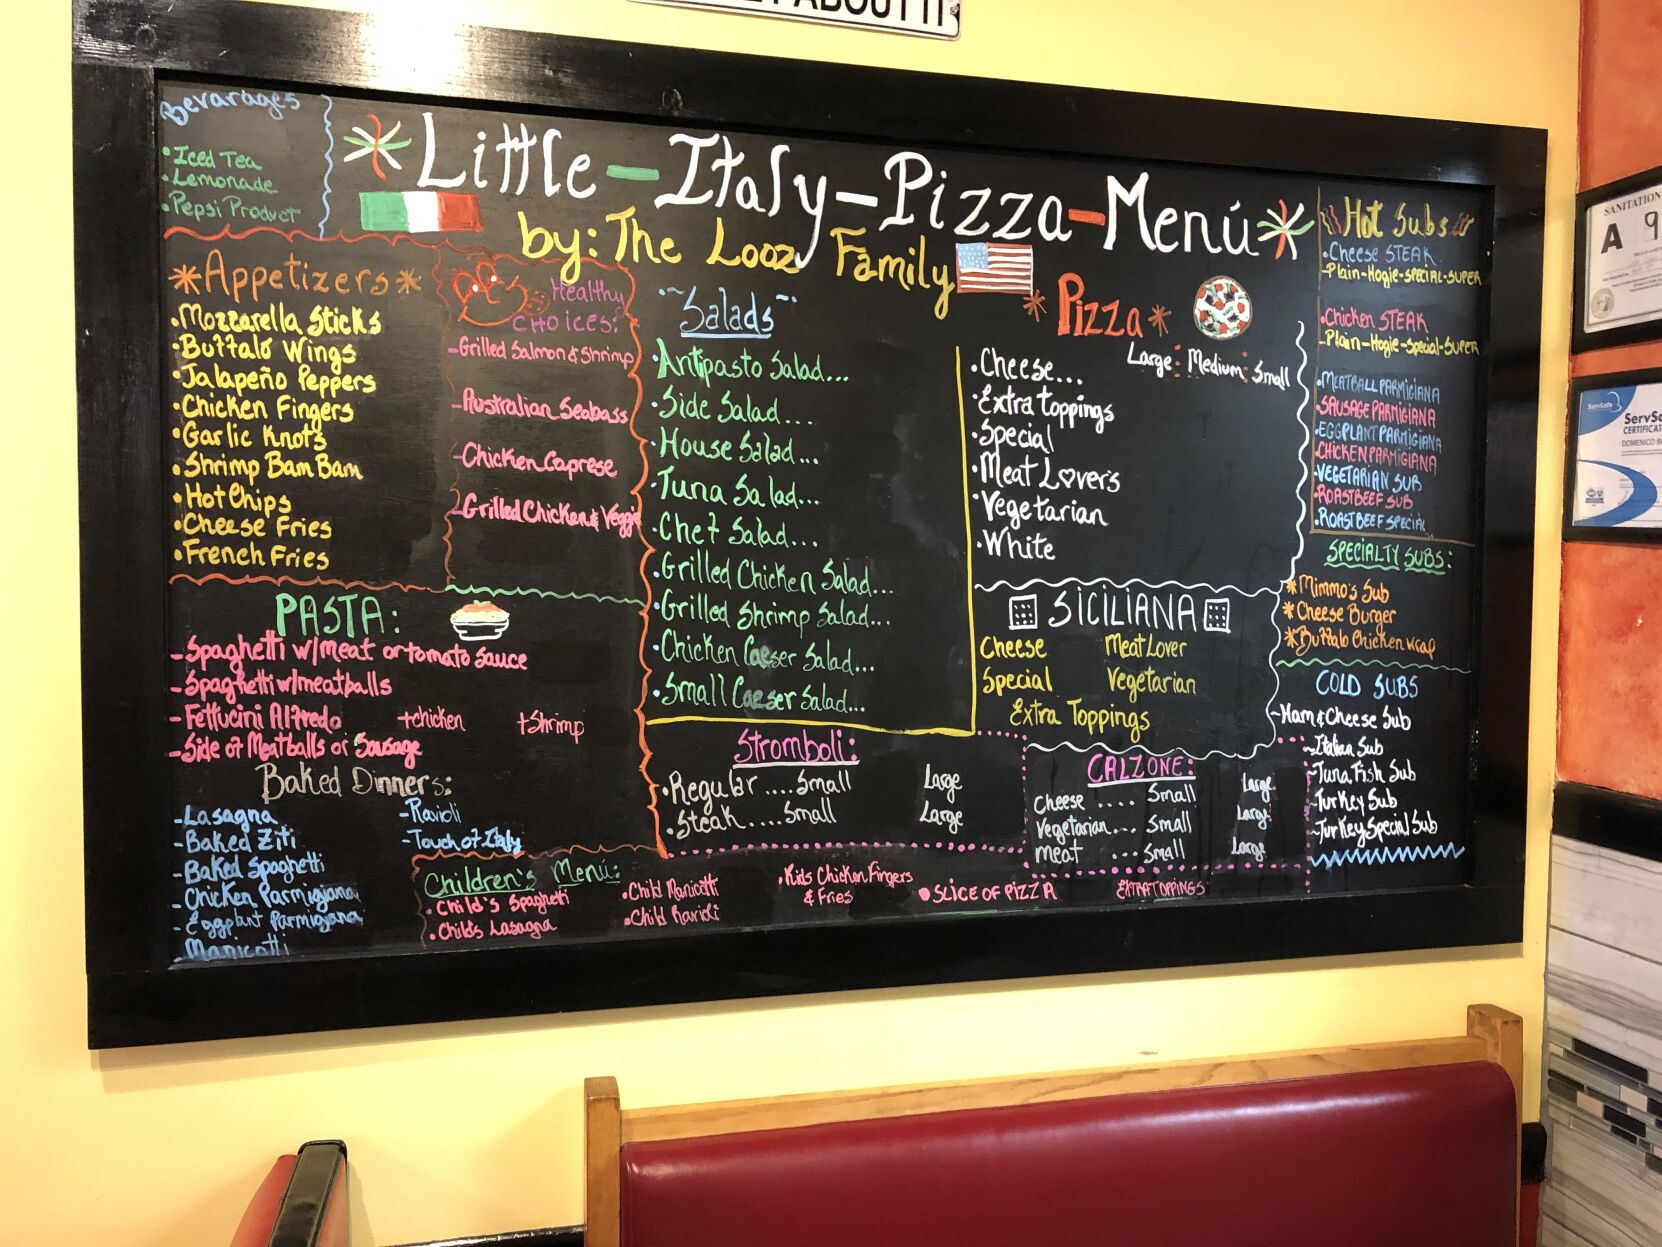 ABOUT IT
Little-Italy-Pizza-Menú
by: The Looz Family
Bevarages
•Iced Tea
•Lemonade
•Pepsi Product
*Appetizers*
•Mozzarella Sticks
•Buffalo Wings
•Jalapeño Peppers
•Chicken Fingers
•Garlic Knots
•Shrimp Bam Bam
•Hot Chips
•Cheese Fries
•French Fries
Healthy
CHOICES:
-Grilled Salmon & Shrimp
-Australian Seabass
-Chicken Caprese
-Grilled Chicken & Veggie
PASTA:
-Spaghetti w/meat or tomato Sauce
-Spaghetti w/meatballs
-Fettucini Alfredo +chicken +Shrimp
-Side of Meatballs or Sausage
Baked Dinners:
-Lasagna
-Baked Ziti
-Baked Spaghetti
-Chicken Parmigiana
-Eggplant Parmigiana
-Manicotti
-Ravioli
-Touch of Italy
Children's Menú:
•Child's Spaghetti
•Childs Lasagna
•Child Manicotti
•Child Ravioli
•Kids Chicken Fingers
& Fries
•SLICE OF PIZZA
EXTRA TOPPINGS:
~Salads~
•Antipasto Salad...
•Side Salad....
•House Salad...
•Tuna Salad...
•Chef Salad...
•Grilled Chicken Salad...
•Grilled Shrimp Salad...
•Chicken Caeser Salad...
•Small Caeser Salad...
Stromboli:
•Regular ....Small Large
•Steak.....Small Large
*Pizza*
Large: Medium: Small
•Cheese...
•Extra toppings
•Special
•Meat Lovers
•Vegetarian
•White
SICILIANA
Cheese Meat Lover
Special Vegetarian
Extra Toppings
CALZONE:
Cheese .... Small Large
Vegetarian... Small Large
Meat ... Small Large
Hot Subs
•Cheese STEAK
-Plain-Hogie-SPECIAL-SUPER
•Chicken STEAK
-Plain-Hogie-Special-SUPER
•MEATBALL PARMIGIANA
•SAUSAGE PARMIGIANA
•EGGPLANT PARMIGIANA
•CHICKEN PARMIGIANA
•VEGETARIAN SUB
•ROASTBEEF SUB
•ROASTBEEF SPECIAL
SPECIALTY SUBS:
*Mimmo's Sub
*Cheese Burger
*Buffalo Chicken wrap
COLD SUBS
~Ham & Cheese Sub
~Italian Sub
~Tuna Fish Sub
~Turkey Sub
~Turkey Special Sub
SANITATION
A 9
ServSafe
ServSa
CERTIFICAT
DOMENICO